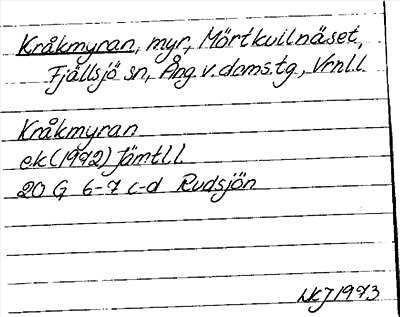 Kråkmyran, myr, Mörtkullnäset,
Fjällsjö sn, Ång. v. doms.tg, Vrnl.l.
Kråkmyran
ek (1972) Jämtl.l.
20 G 6-7 c-d Rudsjön
1973